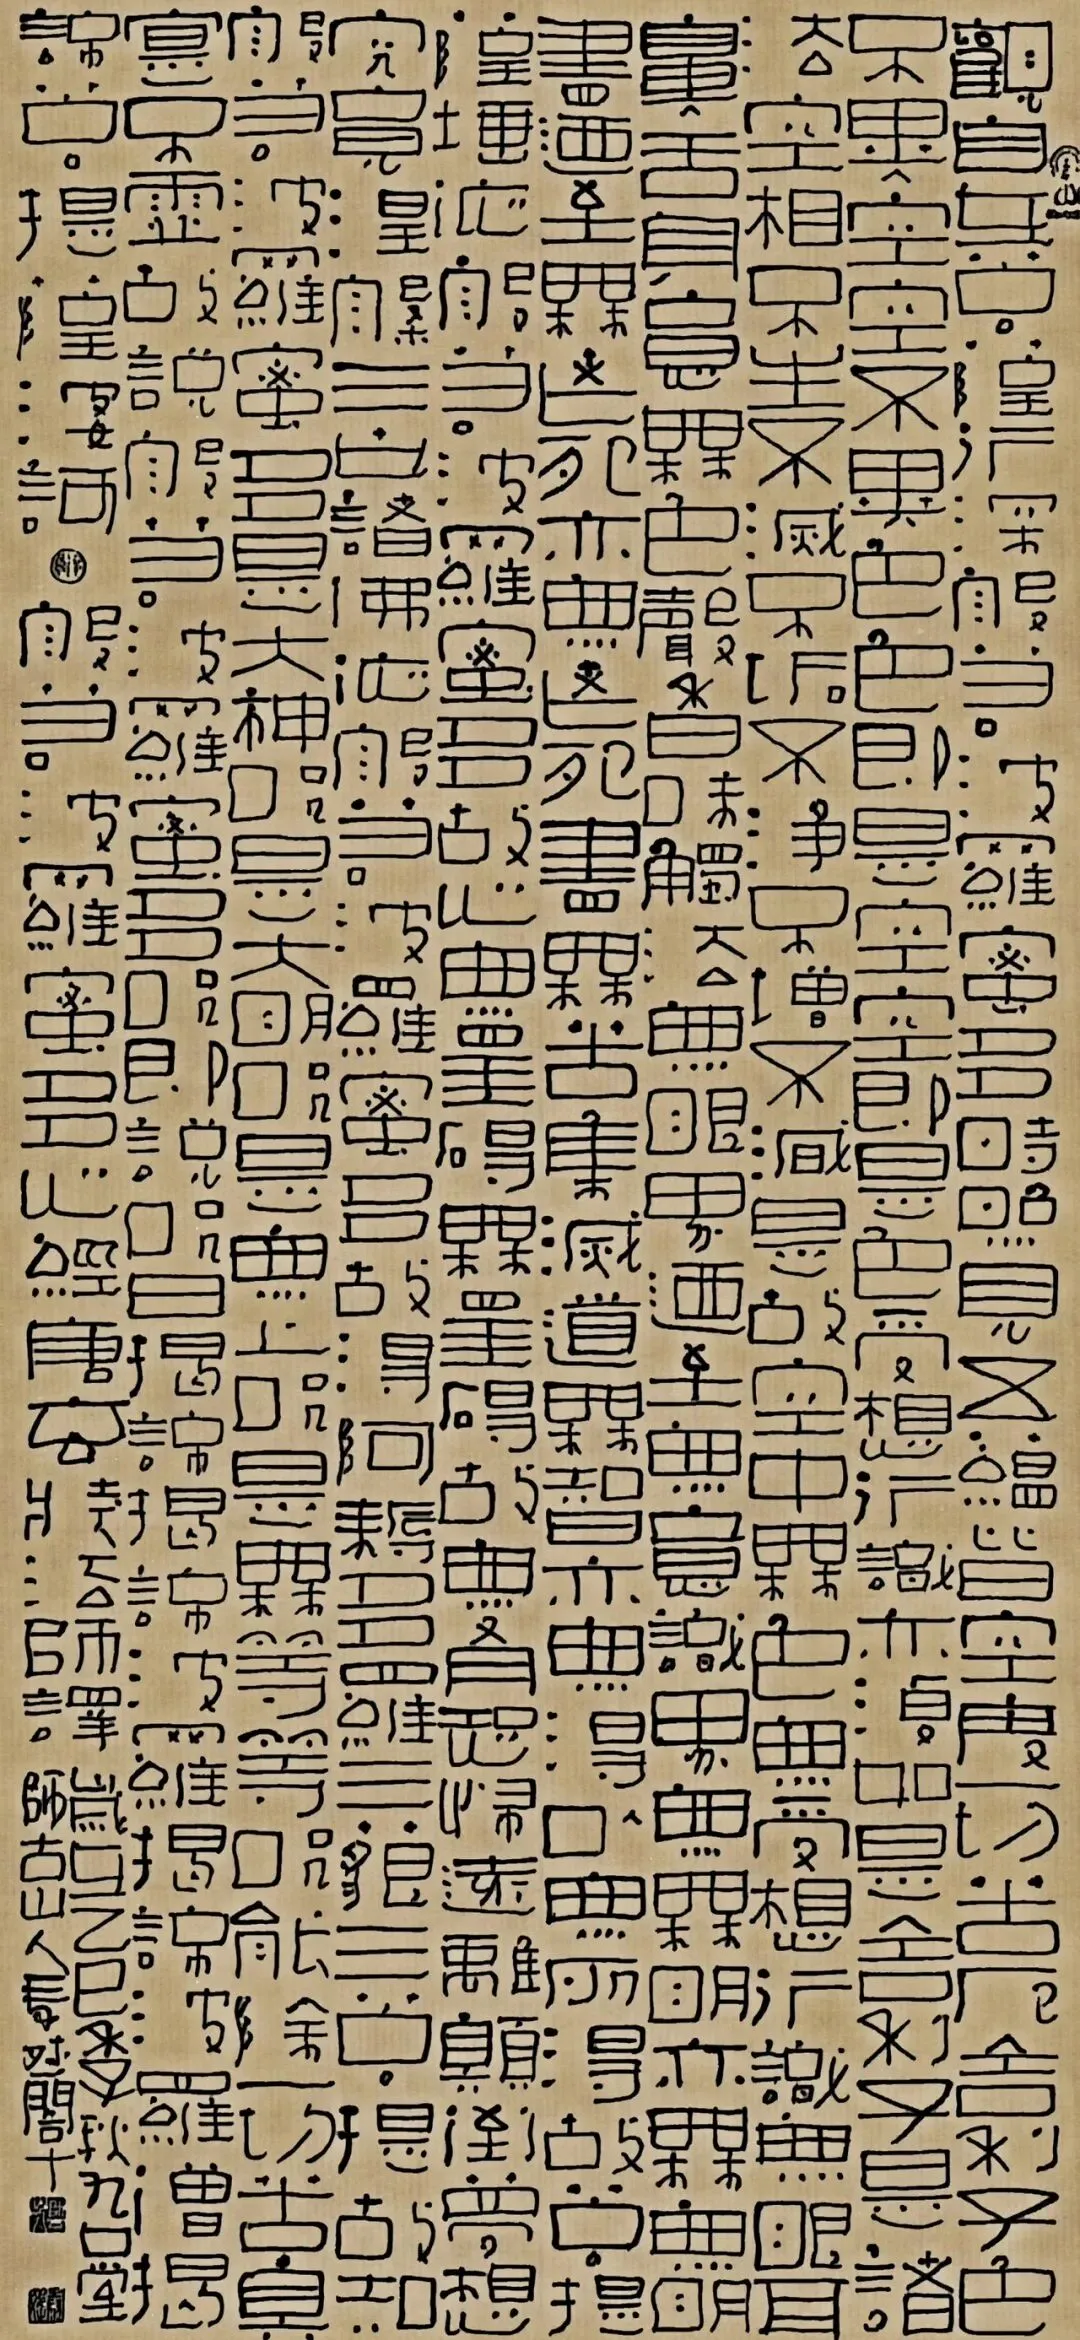 觀自在菩薩行深般若波羅蜜多時照見五蘊皆空度一切苦厄舍利子色
不異空空不異色色即是空空即是色受想行識亦復如是舍利子是諸
法空相不生不滅不垢不淨不增不減是故空中無色無受想行識無眼耳
鼻舌身意無色聲香味觸法無眼界迺至無意識界無無明亦無無明
盡迺至無老死亦無老死盡無苦集滅道無智亦無得以無所得故菩提
薩埵依般若波羅蜜多故心無罣礙無罣礙故無有恐怖遠離顛倒夢想
究竟涅槃三世諸佛依般若波羅蜜多故得阿耨多羅三藐三菩提故知
般若波羅蜜多是大神咒是大明咒是無上咒是無等等咒能除一切苦真
實不虛故說般若波羅蜜多咒即說咒曰揭諦揭諦波羅揭諦波羅僧揭
諦菩提薩婆訶般若波羅蜜多心經唐玄奘法師譯
歲乙巳季秋九堂
師古山人